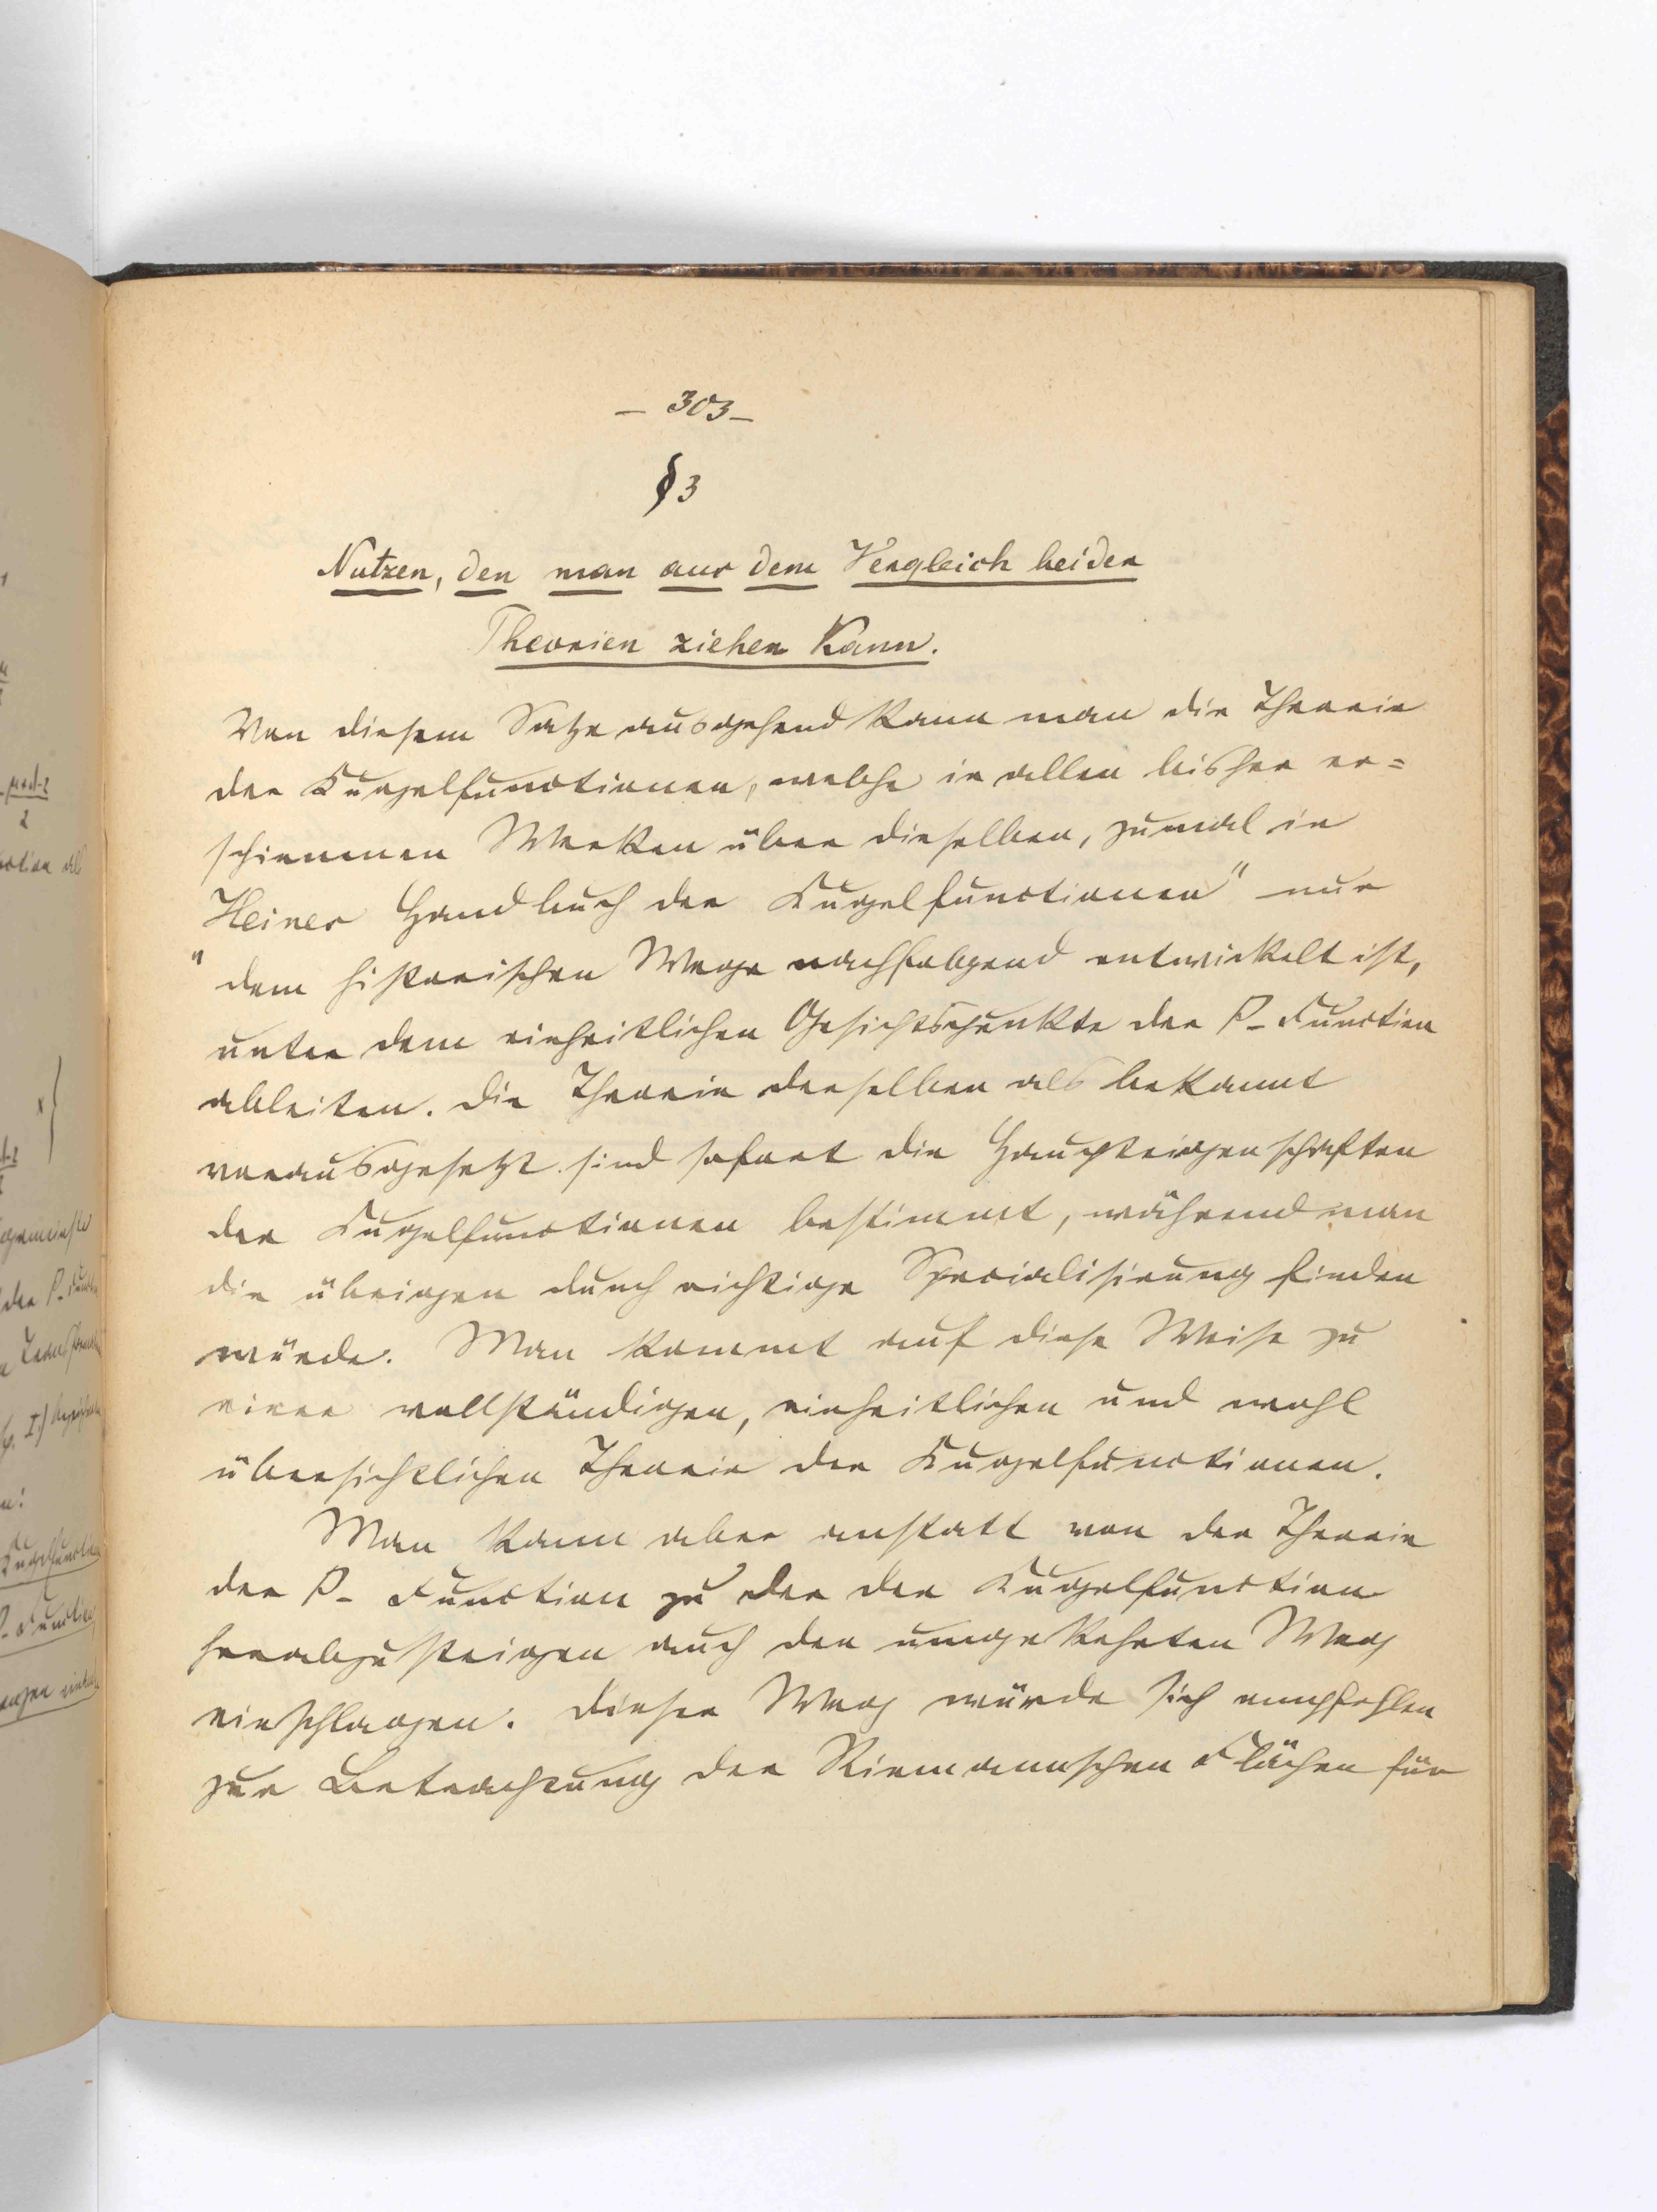 – 303 –
§ 3
Nutzen, den man aus dem Vergleich beider
Theorien ziehen kann.
Von diesem Satze ausgehend kann man die Theorie
der Kugelfunctionen, welche in allen bisher er=
schienenen Werken über dieselben, zumal in
Heines Handbuch der Kugelfunctionen" nur
" dem historischen Wege nachfolgend entwickelt ist,
unter dem einheitlichen Gesichtspunkte der P-Function
ableiten. Die Theorie derselben als bekannt
vorausgesetzt sind sofort die Haupteigenschaften
der Kugelfunctionen bestimmt, während man
die übrigen durch richtige Specialisirung finden
würde. Man kommt auf diese Weise zu
einer vollständigen, einheitlichen und wohl
übersichtlichen Theorie der Kugelfunctionen.
Man kann aber anstatt von der Theorie
der P-Function zu der der Kugelfunction
herabzusteigen auch den umgekehrten Weg
einschlagen. Dieser Weg würde sich empfehlen
zur Betrachtung der Riemannschen Flächen für